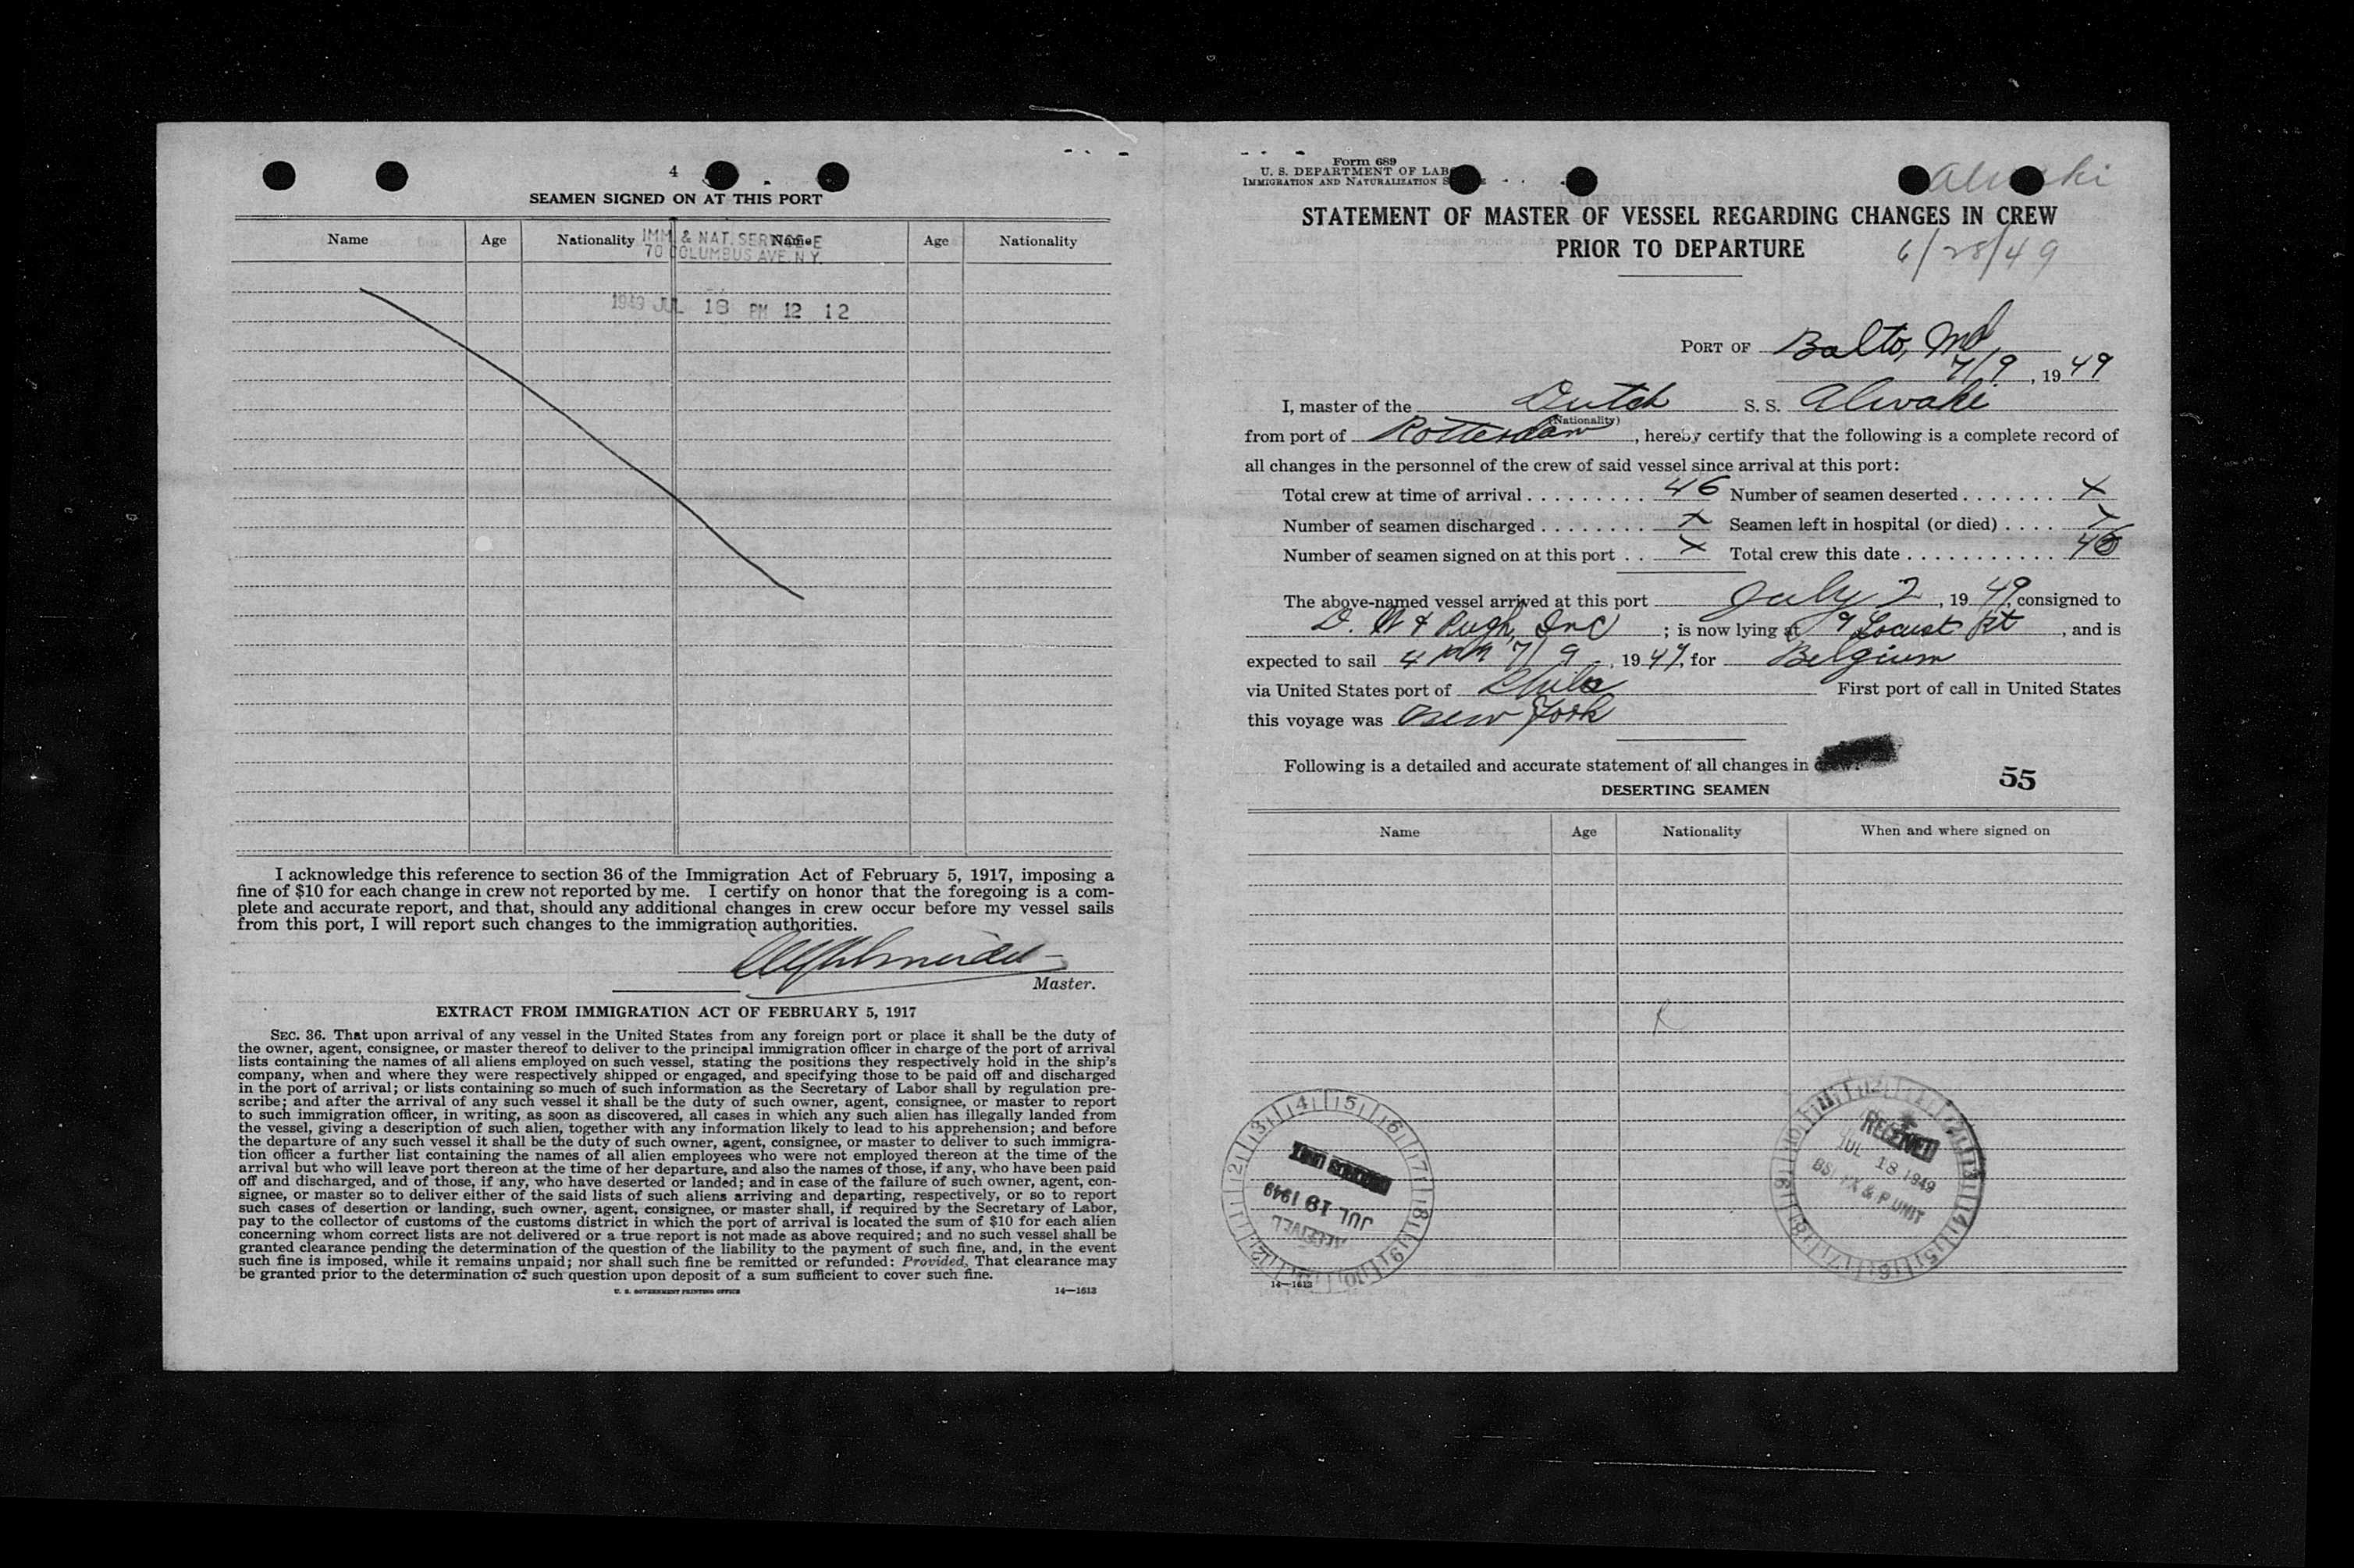 4
SEAMEN SIGNED ON AT THIS PORT
Name Age Nationality Name Age Nationality
IMM. & NAT. SERVICE
70 COLUMBUS AVE. N.Y.
1949 JUL 18 PM 12 12
I acknowledge this reference to section 36 of the Immigration Act of February 5, 1917, imposing a
fine of $10 for each change in crew not reported by me. I certify on honor that the foregoing is a com-
plete and accurate report, and that, should any additional changes in crew occur before my vessel sails
from this port, I will report such changes to the immigration authorities.
Master.
EXTRACT FROM IMMIGRATION ACT OF FEBRUARY 5, 1917
SEC. 36. That upon arrival of any vessel in the United States from any foreign port or place it shall be the duty of
the owner, agent, consignee, or master thereof to deliver to the principal immigration officer in charge of the port of arrival
lists containing the names of all aliens employed on such vessel, stating the positions they respectively hold in the ship's
company, when and where they were respectively shipped or engaged, and specifying those to be paid off and discharged
in the port of arrival; or lists containing so much of such information as the Secretary of Labor shall by regulation pre-
scribe; and after the arrival of any such vessel it shall be the duty of such owner, agent, consignee, or master to report
to such immigration officer, in writing, as soon as discovered, all cases in which any such alien has illegally landed from
the vessel, giving a description of such alien, together with any information likely to lead to his apprehension; and before
the departure of any such vessel it shall be the duty of such owner, agent, consignee, or master to deliver to such immigra-
tion officer a further list containing the names of all alien employees who were not employed thereon at the time of the
arrival but who will leave port thereon at the time of her departure, and also the names of those, if any, who have been paid
off and discharged, and of those, if any, who have deserted or landed; and in case of the failure of such owner, agent, con-
signee, or master so to deliver either of the said lists of such aliens arriving and departing, respectively, or so to report
such cases of desertion or landing, such owner, agent, consignee, or master shall, if required by the Secretary of Labor,
pay to the collector of customs of the customs district in which the port of arrival is located the sum of $10 for each alien
concerning whom correct lists are not delivered or a true report is not made as above required; and no such vessel shall be
granted clearance pending the determination of the question of the liability to the payment of such fine, and, in the event
such fine is imposed, while it remains unpaid; nor shall such fine be remitted or refunded: Provided, That clearance may
be granted prior to the determination of such question upon deposit of a sum sufficient to cover such fine.
U. S. GOVERNMENT PRINTING OFFICE 14—1613
Form 689
U. S. DEPARTMENT OF LAB
IMMIGRATION AND NATURALIZATION S
STATEMENT OF MASTER OF VESSEL REGARDING CHANGES IN CREW
PRIOR TO DEPARTURE
6/28/49
PORT OF Balto, Md
7/9, 1949
I, master of the Dutch S. S. Alwaki
(Nationality)
from port of Rotterdam, hereby certify that the following is a complete record of
all changes in the personnel of the crew of said vessel since arrival at this port:
Total crew at time of arrival . . . . . . . . . 46 Number of seamen deserted . . . . . . . X
Number of seamen discharged . . . . . . . . X Seamen left in hospital (or died) . . . . X
Number of seamen signed on at this port . . X Total crew this date . . . . . . . . . . . . 46
The above-named vessel arrived at this port July 2, 1949, consigned to
Pugh, Inc ; is now lying at 9 Locust Pt, and is
expected to sail 4 PM 7/9, 1949, for Belgium
via United States port of Phila First port of call in United States
this voyage was New York
Following is a detailed and accurate statement of all changes in crew:
55
DESERTING SEAMEN
Name Age Nationality When and where signed on
RECEIVED
JUL 19 1949
RECEIVED
JUL 18 1949
14—1613